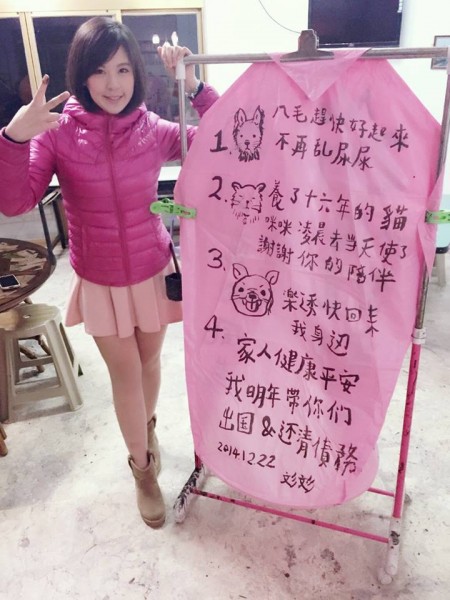 1. 八毛趕快好起來
不再乱尿尿
2. 養了十六年的貓
咪咪凌晨去当天使了
謝謝你的陪伴
3. 樂透快回来
我身边
4. 家人健康平安
我明年帶你们
出国&还清債務
2014.12.22 妏妙